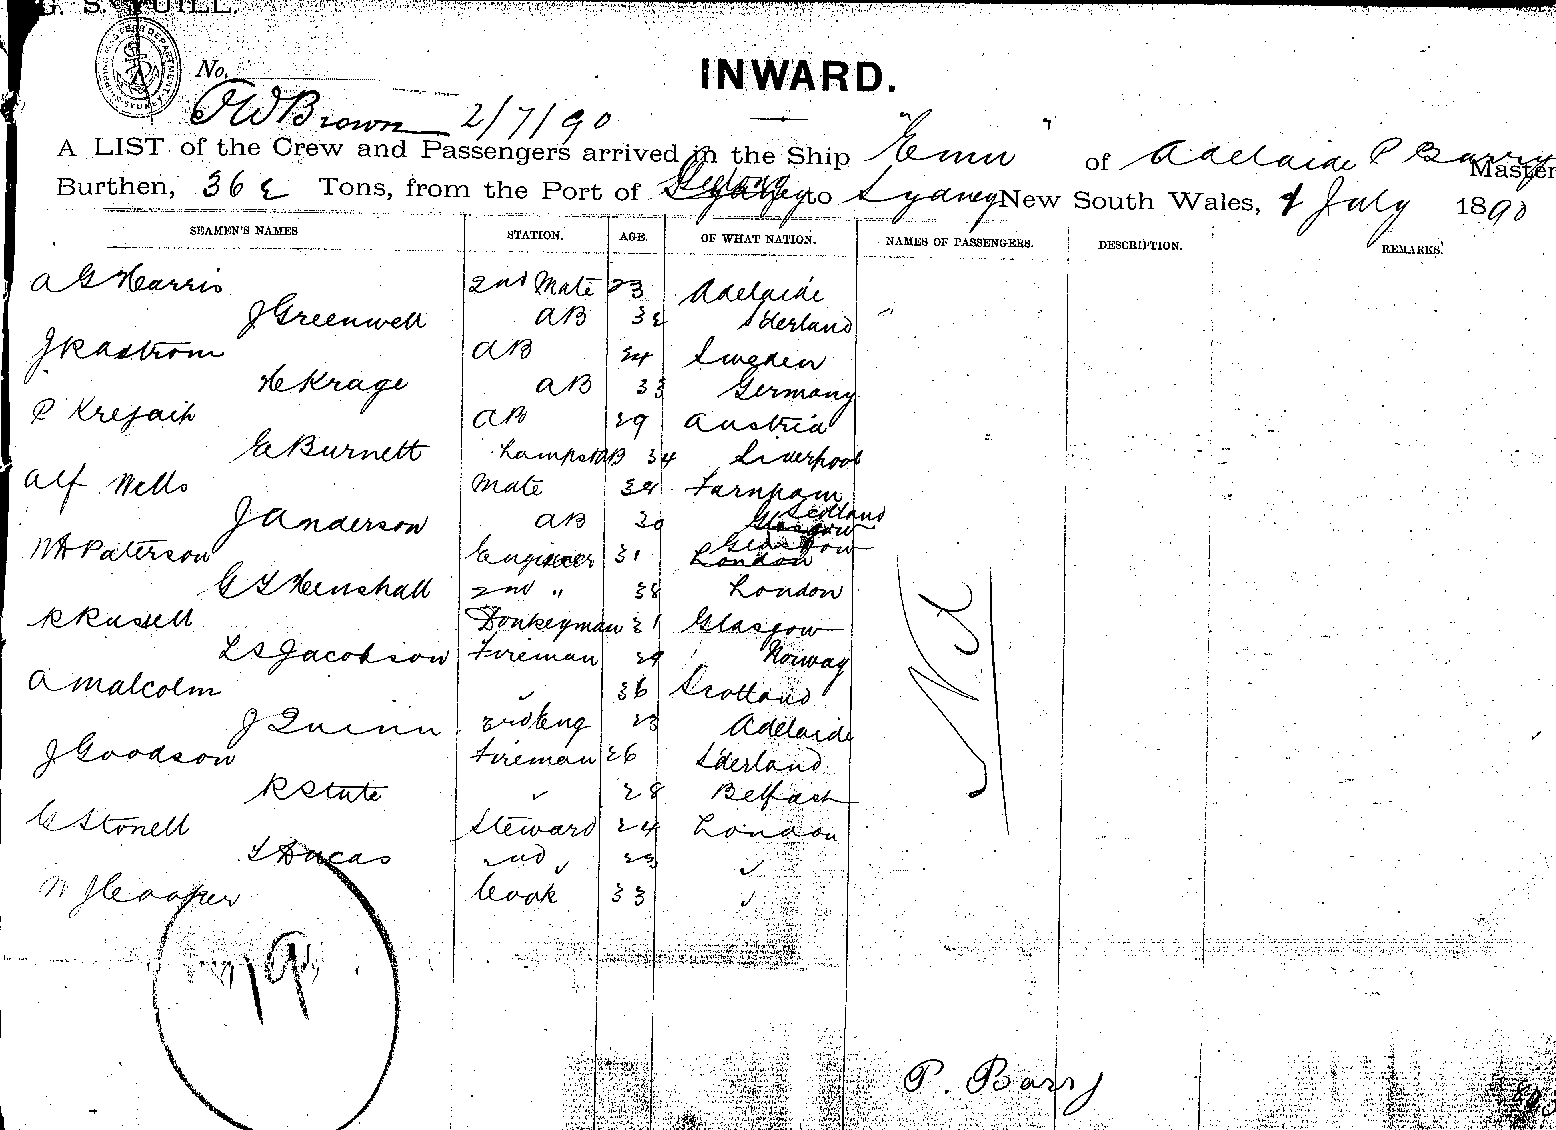 G. S. YUILL.
No.
INWARD.
A W Brown 2/7/90
A LIST of the Crew and Passengers arrived in the Ship "Emu" of Adelaide P Barry Master
Burthen, 362 Tons, from the Port of to Sydney New South Wales, 1 July 1890
SEAMEN'S NAMES STATION. AGE. OF WHAT NATION. NAMES OF PASSENGERS. DESCRIPTION. REMARKS.
A G Harris 2nd Mate 23 Adelaide
J Greenwell AB 32 S'derland
J K Astrom AB 24 Sweden
H Krage AB 33 Germany
P AB 29 Austria
C Burnett Lamps & AB 34 Liverpool
Alf Wells Mate Farnham
J Anderson AB Scotland Glasgow
W H Paterson Engineer 31 Glasgow London
G T Henshall 2nd " 38 London
R Russell Donkeyman 21 Glasgow
L S Jacobson Fireman 29 Norway
A Malcolm 36 Scotland
J Quinn 3rd Eng 23 Adelaide
J Goodson Fireman 26 S'derland
R Stute 28 Belfast
C Stonell Steward 24 London
Ducas 2nd " 23 "
W J Cooper Cook 33 "
Nil
19
P. Barry